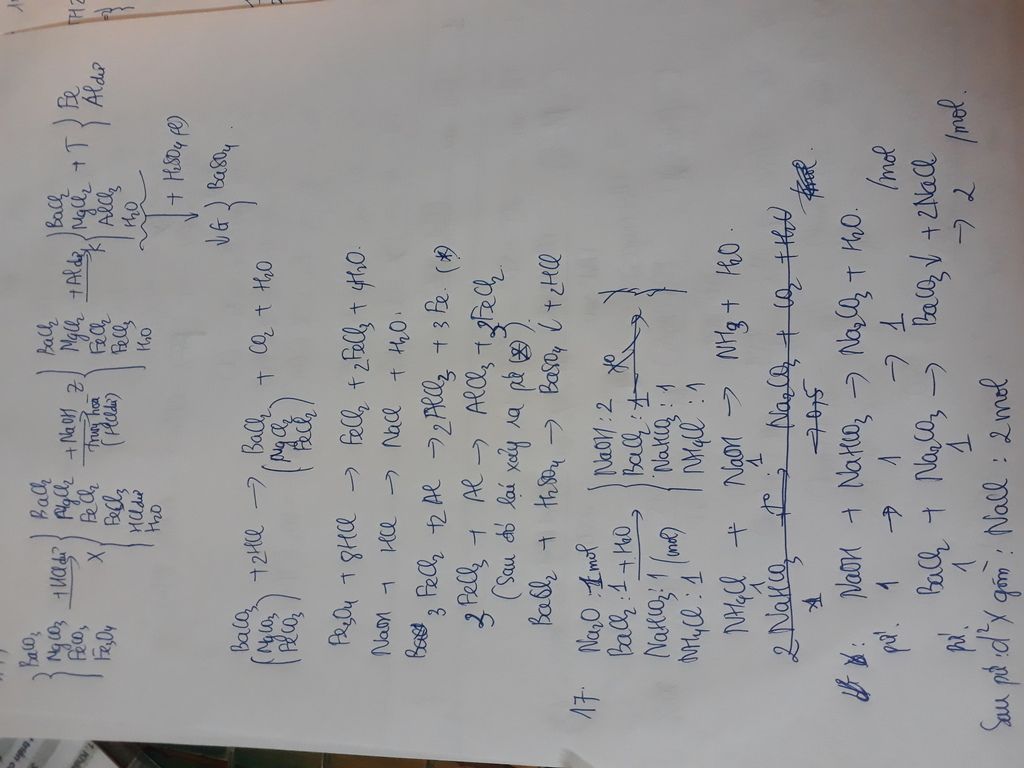 BaCO3
MgCO3
FeCO3
Fe3O4
+HCl dư
X
BaCl2
MgCl2
FeCl2
FeCl3
HCl dư
H2O
+NaOH
Trung hoà
(HCl dư)
Z
BaCl2
MgCl2
FeCl2
FeCl3
H2O
+Al dư
K
BaCl2
MgCl2
AlCl3
H2O
+ T
Fe
Al dư
↓ + H2SO4 (l)
↓G { BaSO4
BaCO3 + 2HCl → BaCl2 + CO2 + H2O
(MgCO3) (MgCl2)
(FeCO3) (FeCl2)
Fe3O4 + 8HCl → FeCl2 + 2FeCl3 + 4H2O.
NaOH + HCl → NaCl + H2O.
3 FeCl2 + 2Al → 2AlCl3 + 3Fe. (*)
3 FeCl3 + Al → AlCl3 + 3FeCl2.
(Sau đó lại xảy ra pứ (*))
BaCl2 + H2SO4 → BaSO4↓ + 2HCl
17. Na2O : 1 mol
BaCl2 : 1
NaHCO3 : 1
NH4Cl : 1 (mol)
+ H2O
NaOH : 2
BaCl2 : 1
NaHCO3 : 1
NH4Cl : 1
NH4Cl + NaOH → NH3 + H2O.
1 1
2NaHCO3 → Na2CO3 + CO2 + H2O
→ 0,5
NaOH + NaHCO3 → Na2CO3 + H2O.
pứ: 1 → 1 → 1 /mol
BaCl2 + Na2CO3 → BaCO3↓ + 2NaCl
pứ: 1 1 → 2 /mol.
Sau pứ: d² X gồm: NaCl : 2 mol